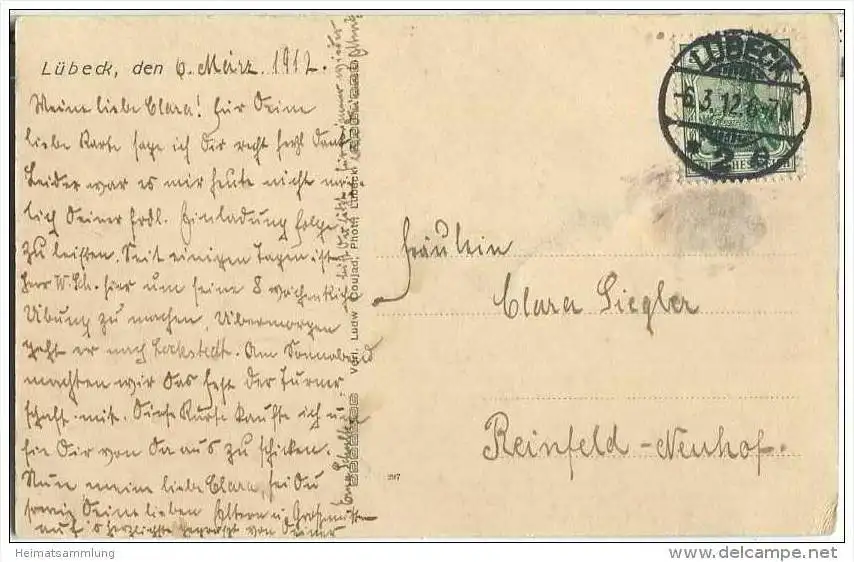 Lübeck, den 6. März 1912.
Meine liebe Clara! Für Deine
liebe Karte sage ich Dir recht herzl Dank
Leider war es mir heute nicht mög-
lich Deiner frdl. Einladung Folge
zu leisten. Seit einigen Tagen ist
Herr W. Sch. hier um seine 8 wöchentliche
Übung zu machen, Übermorgen
geht er nach Lockstedt. Am Sonnabend
machten wir das Fest der Turner
schaft mit. Diese Karte kaufte ich um
sie Dir von da aus zu schicken.
Nun meine liebe Clara, sei Du
sowie Deine lieben Eltern u. Großmutter
auf's herzlichste gegrüßt von Deiner
Verl. Ludw. Doujad, Phot. Lübeck
LÜBECK
6.3.12.6-7N
* 2 e
DEUTSCHES REICH
Fräulein
Clara Siegler
Reinfeld-Neuhof.
297
Heimatsammlung
www.delcampe.net